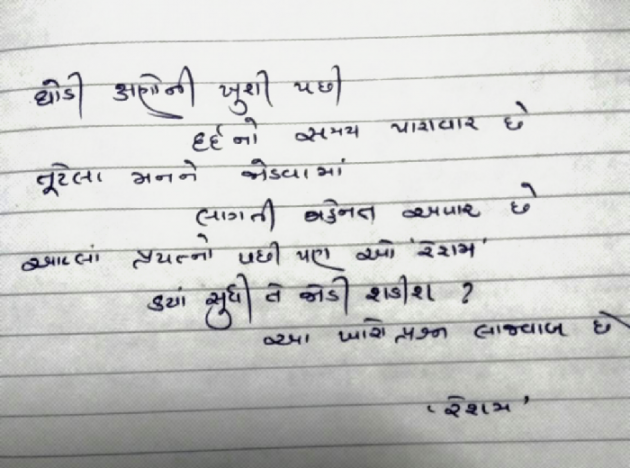 થોડી ક્ષણોની ખુશી પછી
દર્દનો સમય પારાવાર છે
તૂટેલા મનને જોડવામાં
લાગતી મહેનત અપાર છે
આટલાં પ્રયત્નો પછી પણ ઓ 'રેશમ'
ક્યાં સુધી તે જોડી શકીશ ?
આ મારો પ્રશ્ન લાજવાબ છે
'રેશમ'